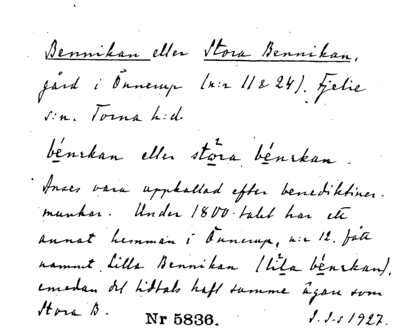 Bennikan eller Stora Bennikan,
gård i Önnerup (n:r 11 & 24). Fjelie
s:n. Torna h:d.
bénikan eller stǫ̈ra bénikan.
Anses vara uppkallad efter benediktiner-
munkar. Under 1800-talet har ett
annat hemman i Önnerup, n:r 12, fått
namnet Lilla Bennikan (lila bénikan),
emedan det tidtals haft samme ägare som
Stora B.
Nr 5836. I. I-s 1927.